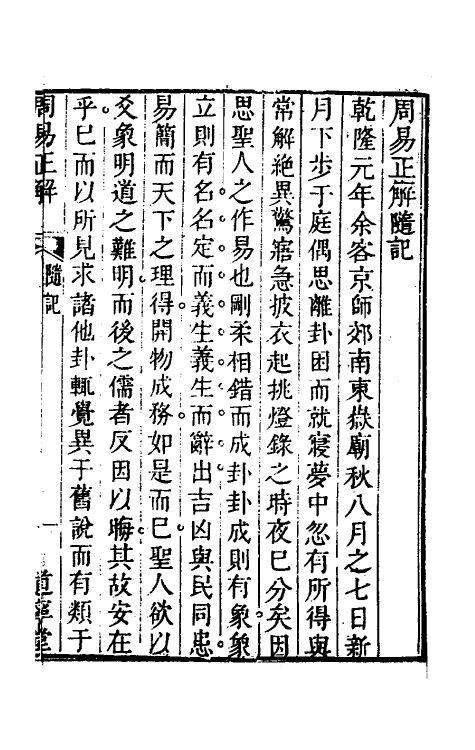 周易正解隨記
乾隆元年余客京師郊南東嶽廟秋八月之七日新
月下步于庭偶思離卦困而就寢夢中忽有所得與
常解絶異驚寤急披衣起挑燈錄之時夜巳分矣因
思聖人之作易也剛柔相錯而成卦卦成則有象象
立則有名名定而義生義生而辭出吉凶與民同患
易簡而天下之理得開物成務如是而巳聖人欲以
爻象明道之難明而後之儒者反因以晦其故安在
乎巳而以所見求諸他卦輒覺異于舊說而有類于
周易正解 隨記 一 道寧堂